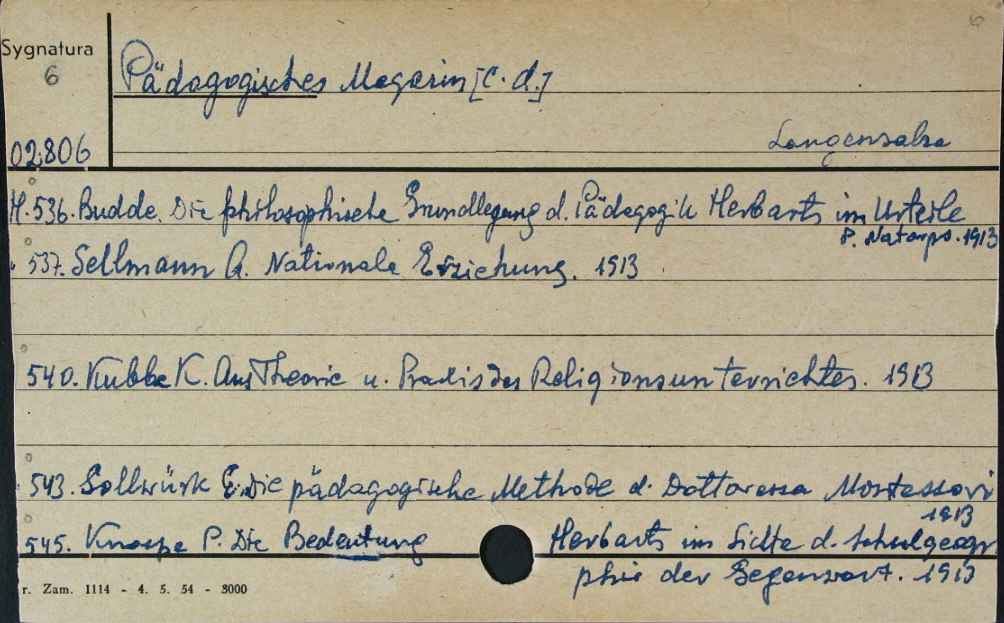 6
Sygnatura
6
Pädagogisches Magazin [c.d.]
02.806
Langensalza
H.536. Budde. Die philosophische Grundlegung d. Pädagogik Herbarts im Urteile
P. Natorps. 1913
537. Sellmann A. Nationale Erziehung. 1913
540. Kubbe K. Aus Theorie u. Praxis des Religionsunterrichtes. 1913
543. Sollwürk E. Die pädagogische Methode d. Dottoressa Montessori
1913
545. Knospe P. Die Bedeutung Herbarts im Lichte d. Schulgeogr
phie der Gegenwart. 1913
r. Zam. 1114 - 4. 5. 54 - 3000